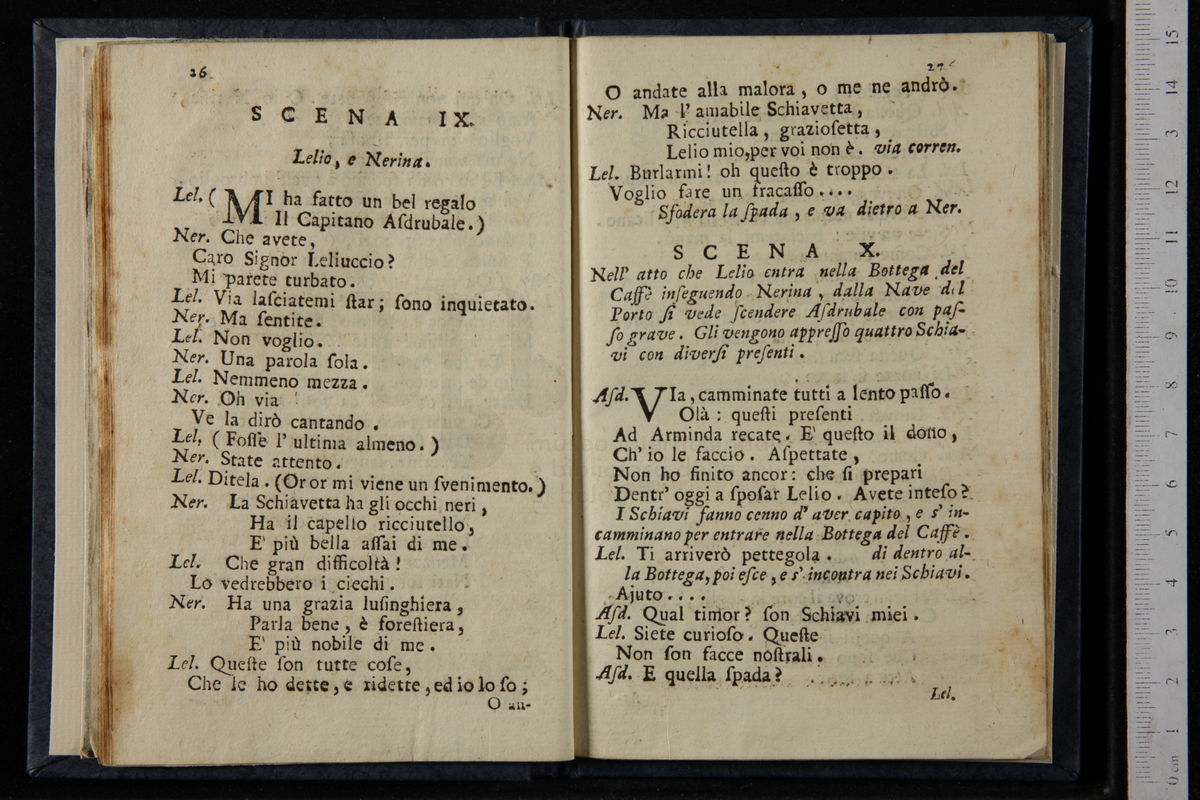 26
SCENA IX.
Lelio, e Nerina.
Lel. ( MI ha fatto un bel regalo
Il Capitano Aſdrubale.)
Ner. Che avete,
Caro Signor Leliuccio?
Mi parete turbato.
Lel. Via laſciatemi ſtar; ſono inquietato.
Ner. Ma ſentite.
Lel. Non voglio.
Ner. Una parola ſola.
Lel. Nemmeno mezza.
Ner. Oh via !
Ve la dirò cantando.
Lel, ( Foſſe l' ultima almeno. )
Ner. State attento.
Lel. Ditela. (Or or mi viene un ſvenimento.)
Ner. La Schiavetta ha gli occhi neri,
Ha il capello ricciutello,
E' più bella aſſai di me.
Lel. Che gran difficoltà!
Lo vedrebbero i ciechi.
Ner. Ha una grazia luſinghiera,
Parla bene, è foreſtiera,
E' più nobile di me.
Lel. Queſte ſon tutte coſe,
Che le ho dette, e ridette, ed io lo ſo;
O an-
27
O andate alla malora, o me ne andrò.
Ner. Ma l' amabile Schiavetta,
Ricciutella, grazioſetta,
Lelio mio, per voi non è. via corren.
Lel. Burlarmi! oh queſto è troppo.
Voglio fare un fracaſſo....
Sfodera la ſpada, e va dietro a Ner.
SCENA X.
Nell' atto che Lelio entra nella Bottega del
Caffè inſeguendo Nerina, dalla Nave del
Porto ſi vede ſcendere Aſdrubale con paſ-
ſo grave. Gli vengono appreſſo quattro Schia-
vi con diverſi preſenti.
Aſd. VIa, camminate tutti a lento paſſo.
Olà: queſti preſenti
Ad Arminda recate. E' queſto il dono,
Ch' io le faccio. Aſpettate,
Non ho finito ancor: che ſi prepari
Dentr' oggi a ſpoſar Lelio. Avete inteſo?
I Schiavi fanno cenno d' aver capito, e s' in-
camminano per entrare nella Bottega del Caffè.
Lel. Ti arriverò pettegola. di dentro al-
la Bottega, poi eſce, e s' incontra nei Schiavi.
Ajuto....
Aſd. Qual timor? ſon Schiavi miei.
Lel. Siete curioſo. Queſte
Non ſon facce noſtrali.
Aſd. E quella ſpada?
Lel.
15
14
13
12
11
10
9
8
7
6
5
4
3
2
1
0 cm